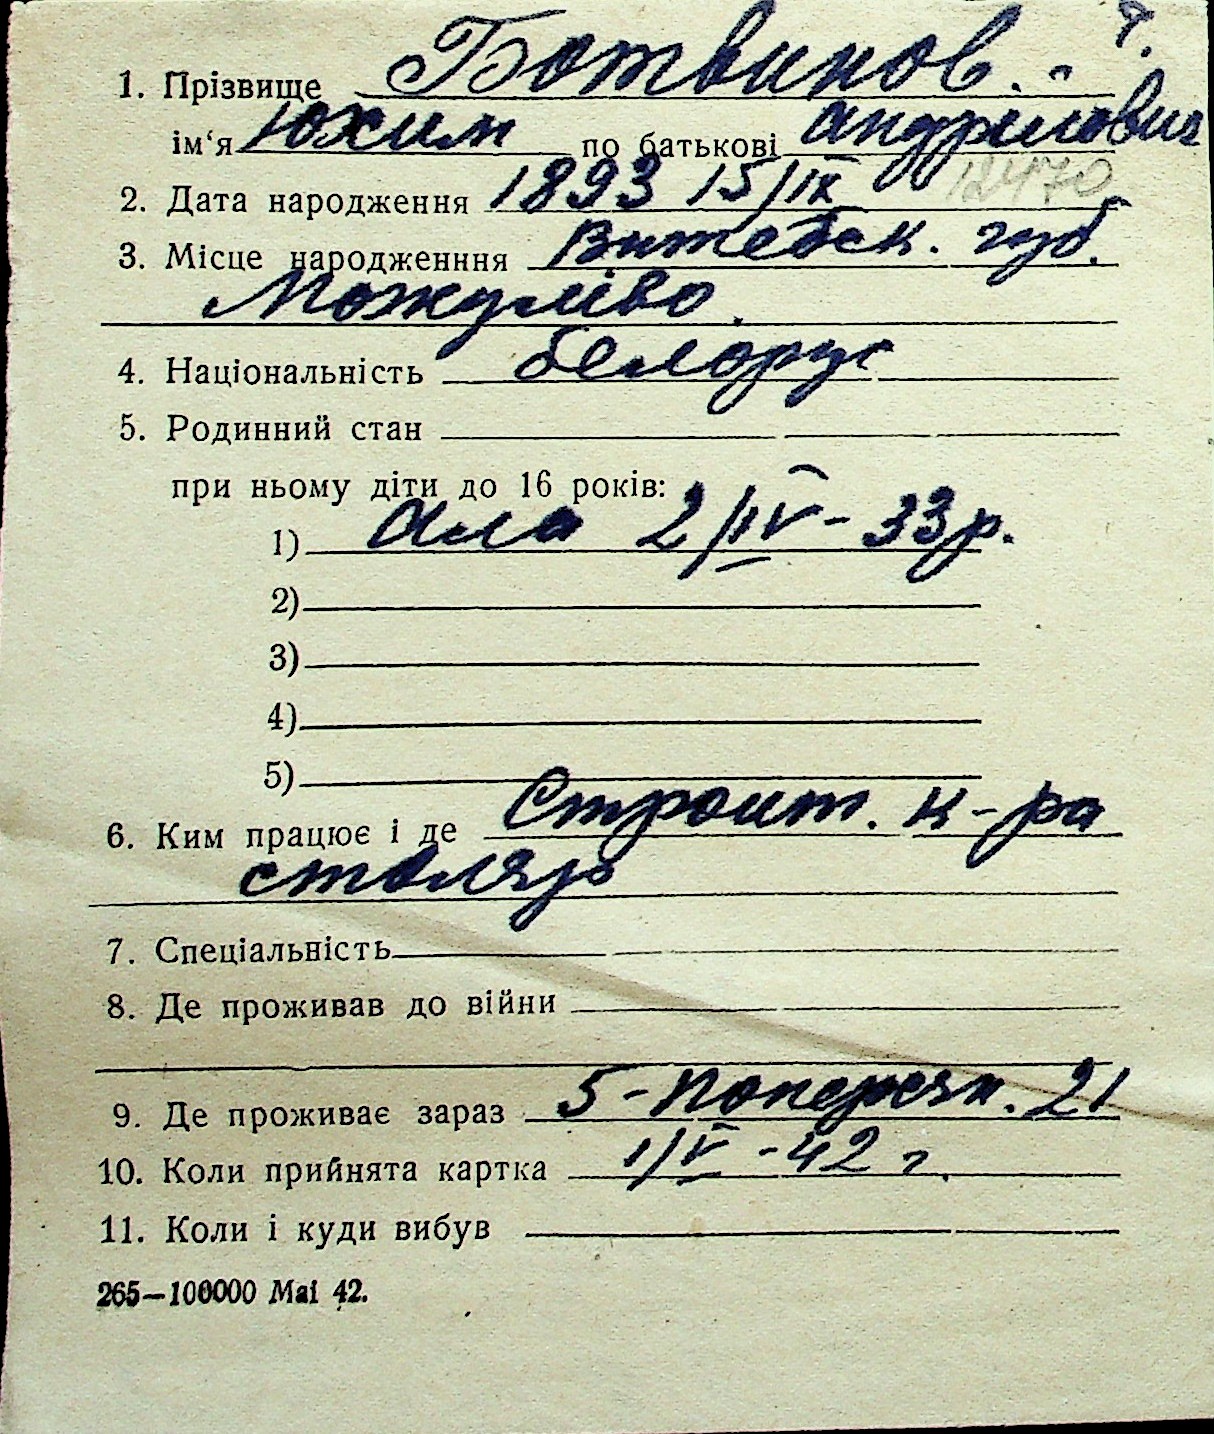 ч.
1. Прізвище Ботвинов.
ім‘я Юхим по батькові Андрилович
12470
2. Дата народження 1893 15/IX
3. Місце народженння Витебск. губ.
Можуліво.
4. Національність белорус
5. Родинний стан
при ньому діти до 16 років:
1) Алла 2/IV - 33 р.
2)
3)
4)
5)
6. Ким працює і де Строит. к-ра
столяр
7. Спеціальність
8. Де проживав до війни
9. Де проживає зараз 5-Поперечн. 21
10. Коли прийнята картка 1/V - 42 г.
11. Коли і куди вибув
265—100000 Mai 42.